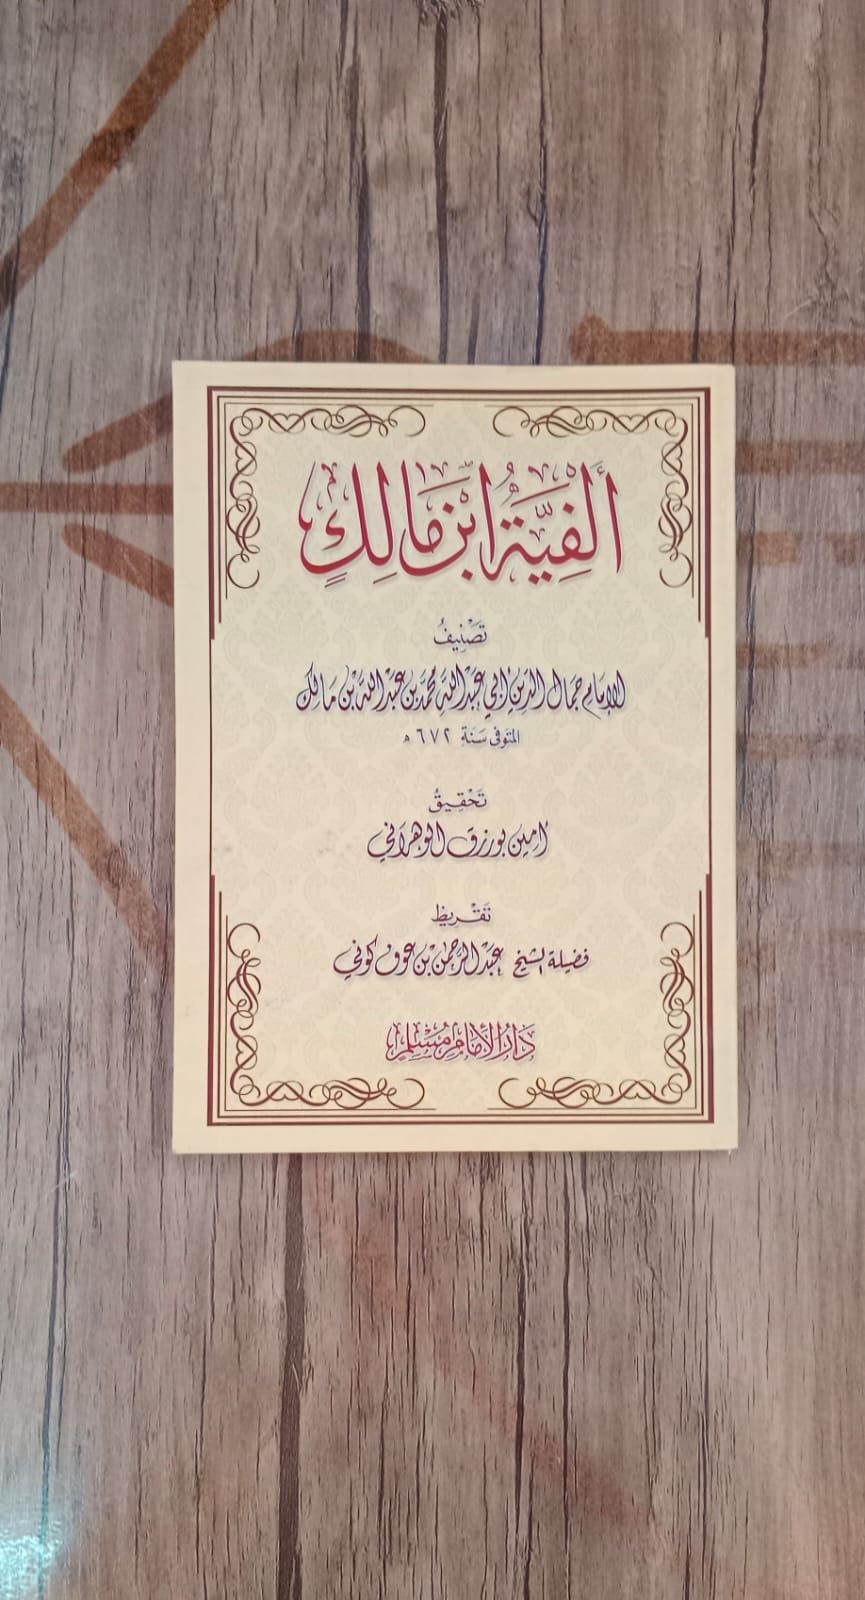 أَلْفِيَّةُ ابْنِ مَالِكٍ
تَصْنِيفُ
الإمَامِ جَمَال الدِّين أبي عَبْد اللَّه مُحمَّد بن عَبْد اللَّه بن مَالِك
المتوفى سَنَة ٦٧٢ ه
تَحْقِيقُ
أمين بورزق الوهراني
تَقْريظ
فضيلة الشيخ عبد الرحمن بن عوف كوني
دَارُ الإمَامِ مُسْلِم